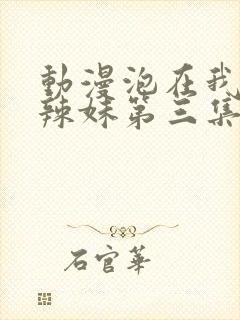 動漫泡在我
辣妹第三集
石官華